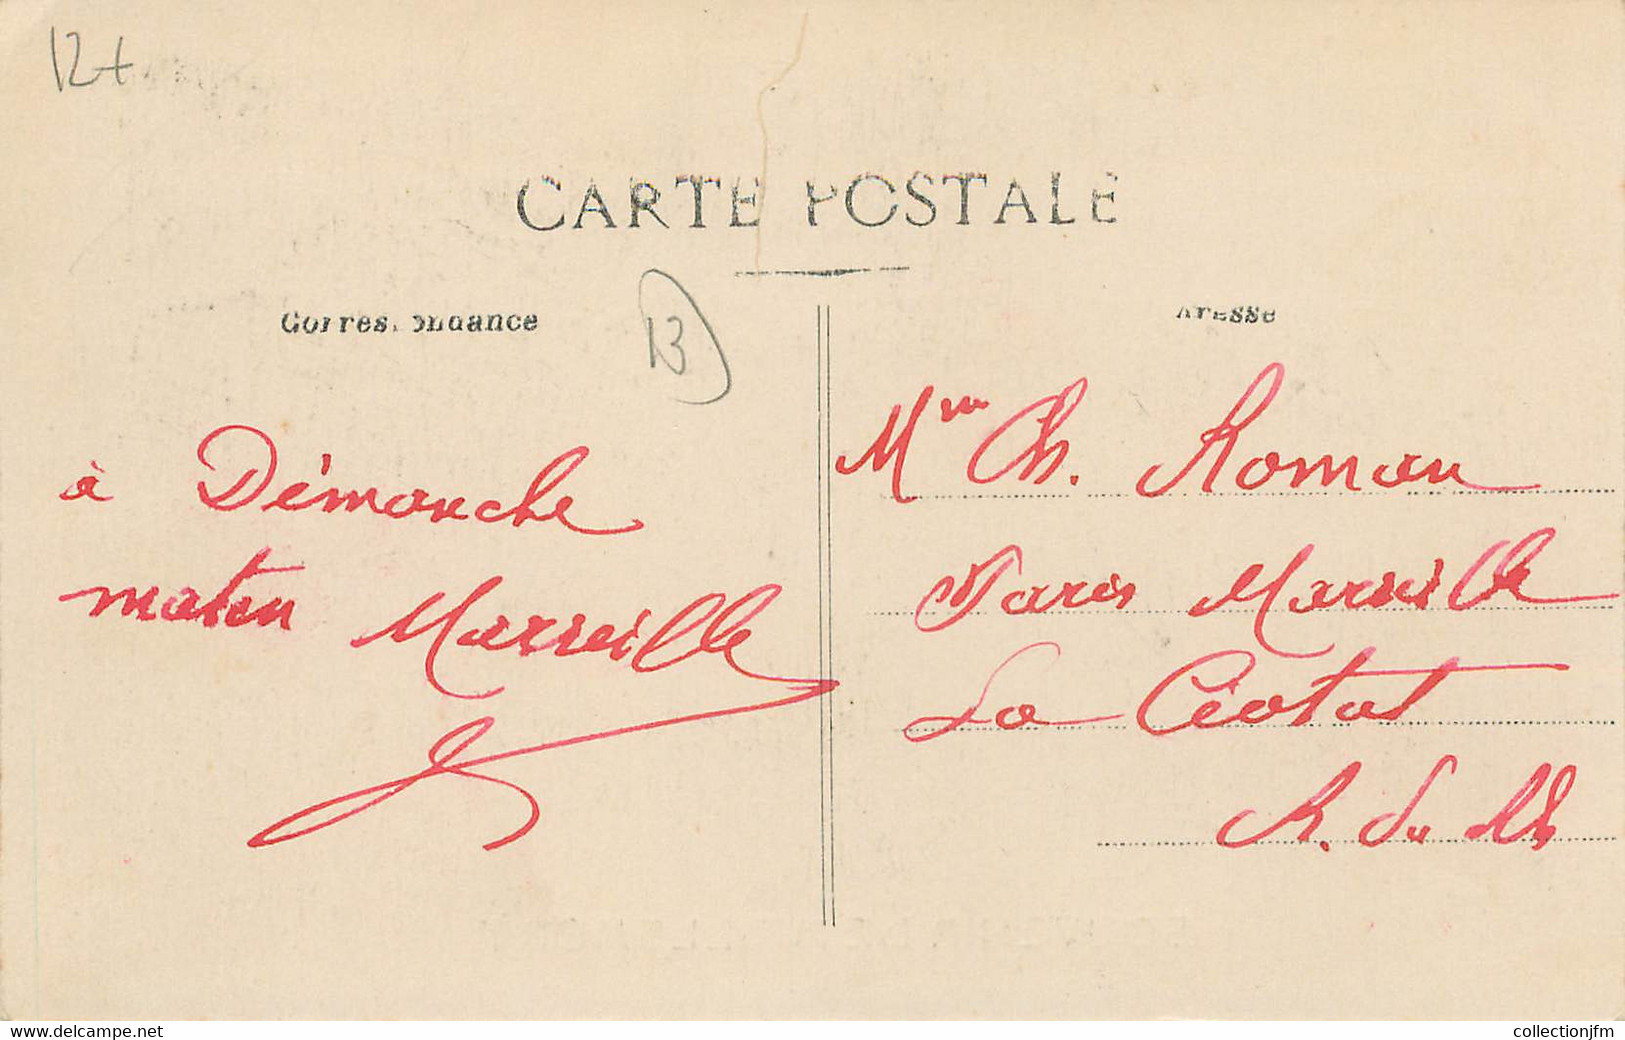 12+
CARTE POSTALE
Correspondance
Adresse
13
à Démanche
matin Marseille
Mme Ch. Roman
Paris Marseille
La Ciotat
B. du Rh
delcampe.net
collectionjfm